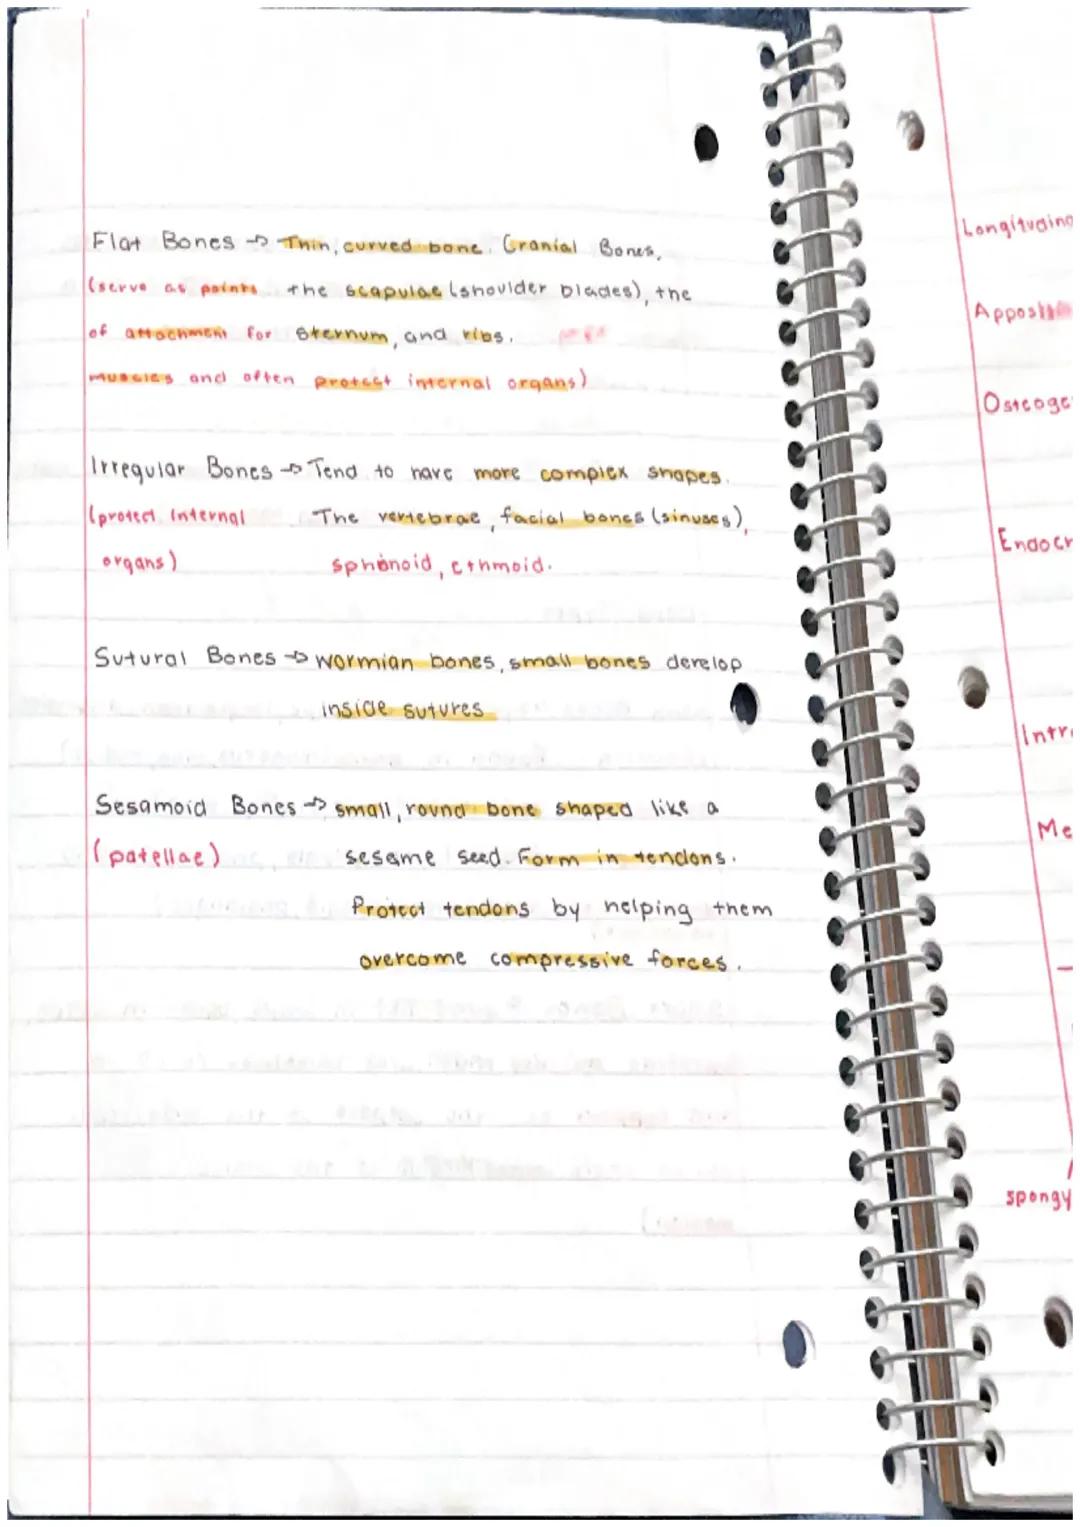 Flat Bones → Thin, curved bone. Cranial Bones,
(serve as points the scapulae (shoulder blades), the
of attachment for sternum, and ribs.
muscles and often protect internal organs)
Irregular Bones → Tend to have more complex shapes.
(protect internal The vertebrae, facial bones (sinuses),
organs) sphenoid, ethmoid.
Sutural Bones → wormian bones, small bones develop
inside sutures
Sesamoid Bones → small, round bone shaped like a
(patellae) sesame seed. Form in tendons.
Protect tendons by helping them
overcome compressive forces.
Longitudina
Apposi
Osteoge
Endocr
Intr
Me
spongy